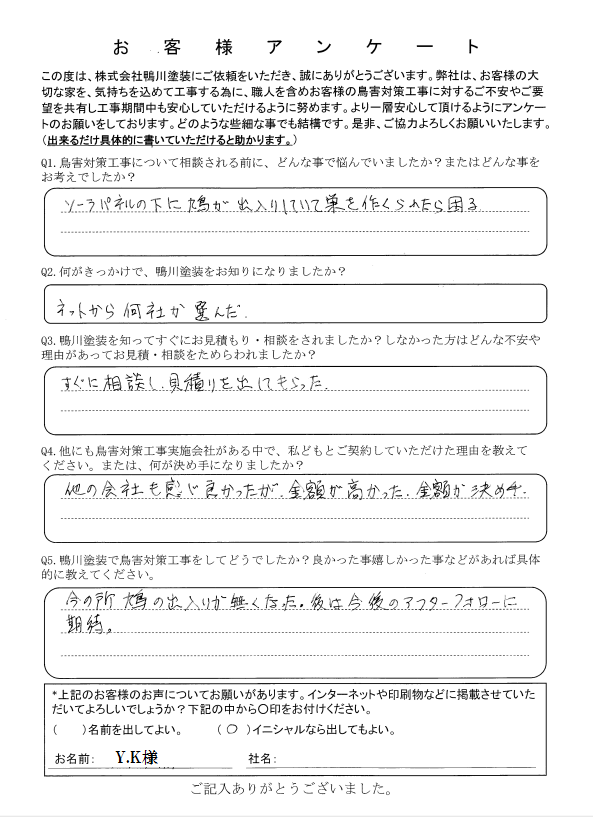 お客様アンケート
この度は、株式会社鴨川塗装にご依頼をいただき、誠にありがとうございます。弊社は、お客様の大
切な家を、気持ちを込めて工事する為に、職人を含めお客様の鳥害対策工事に対するご不安やご要
望を共有し工事期間中も安心していただけるように努めます。より一層安心して頂けるようにアンケー
トのお願いをしております。どのような些細な事でも結構です。是非、ご協力よろしくお願いいたします。
（出来るだけ具体的に書いていただけると助かります。）
Q1.鳥害対策工事について相談される前に、どんな事で悩んでいましたか？またはどんな事を
お考えでしたか？
ソーラパネルの下に鳩が出入りしていて巣を作くられたら困る
Q2.何がきっかけで、鴨川塗装をお知りになりましたか？
ネットから何社か選んだ.
Q3.鴨川塗装を知ってすぐにお見積もり・相談をされましたか？しなかった方はどんな不安や
理由があってお見積・相談をためらわれましたか？
すぐに相談し、見積りを出してもらった.
Q4.他にも鳥害対策工事実施会社がある中で、私どもとご契約していただけた理由を教えて
ください。または、何が決め手になりましたか？
他の会社も感じ良かったが、金額が高かった. 金額が決め手.
Q5.鴨川塗装で鳥害対策工事をしてどうでしたか？良かった事嬉しかった事などがあれば具体
的に教えてください。
今の所鳩の出入りが無くなった。後は今後のアフターフォローに
期待。
*上記のお客様のお声についてお願いがあります。インターネットや印刷物などに掲載させていた
だいてよろしいでしょうか？下記の中から〇印をお付けください。
（　　）名前を出してよい。　　（ ○ ）イニシャルなら出してもよい。
お名前：　Y.K様　　社名：
ご記入ありがとうございました。